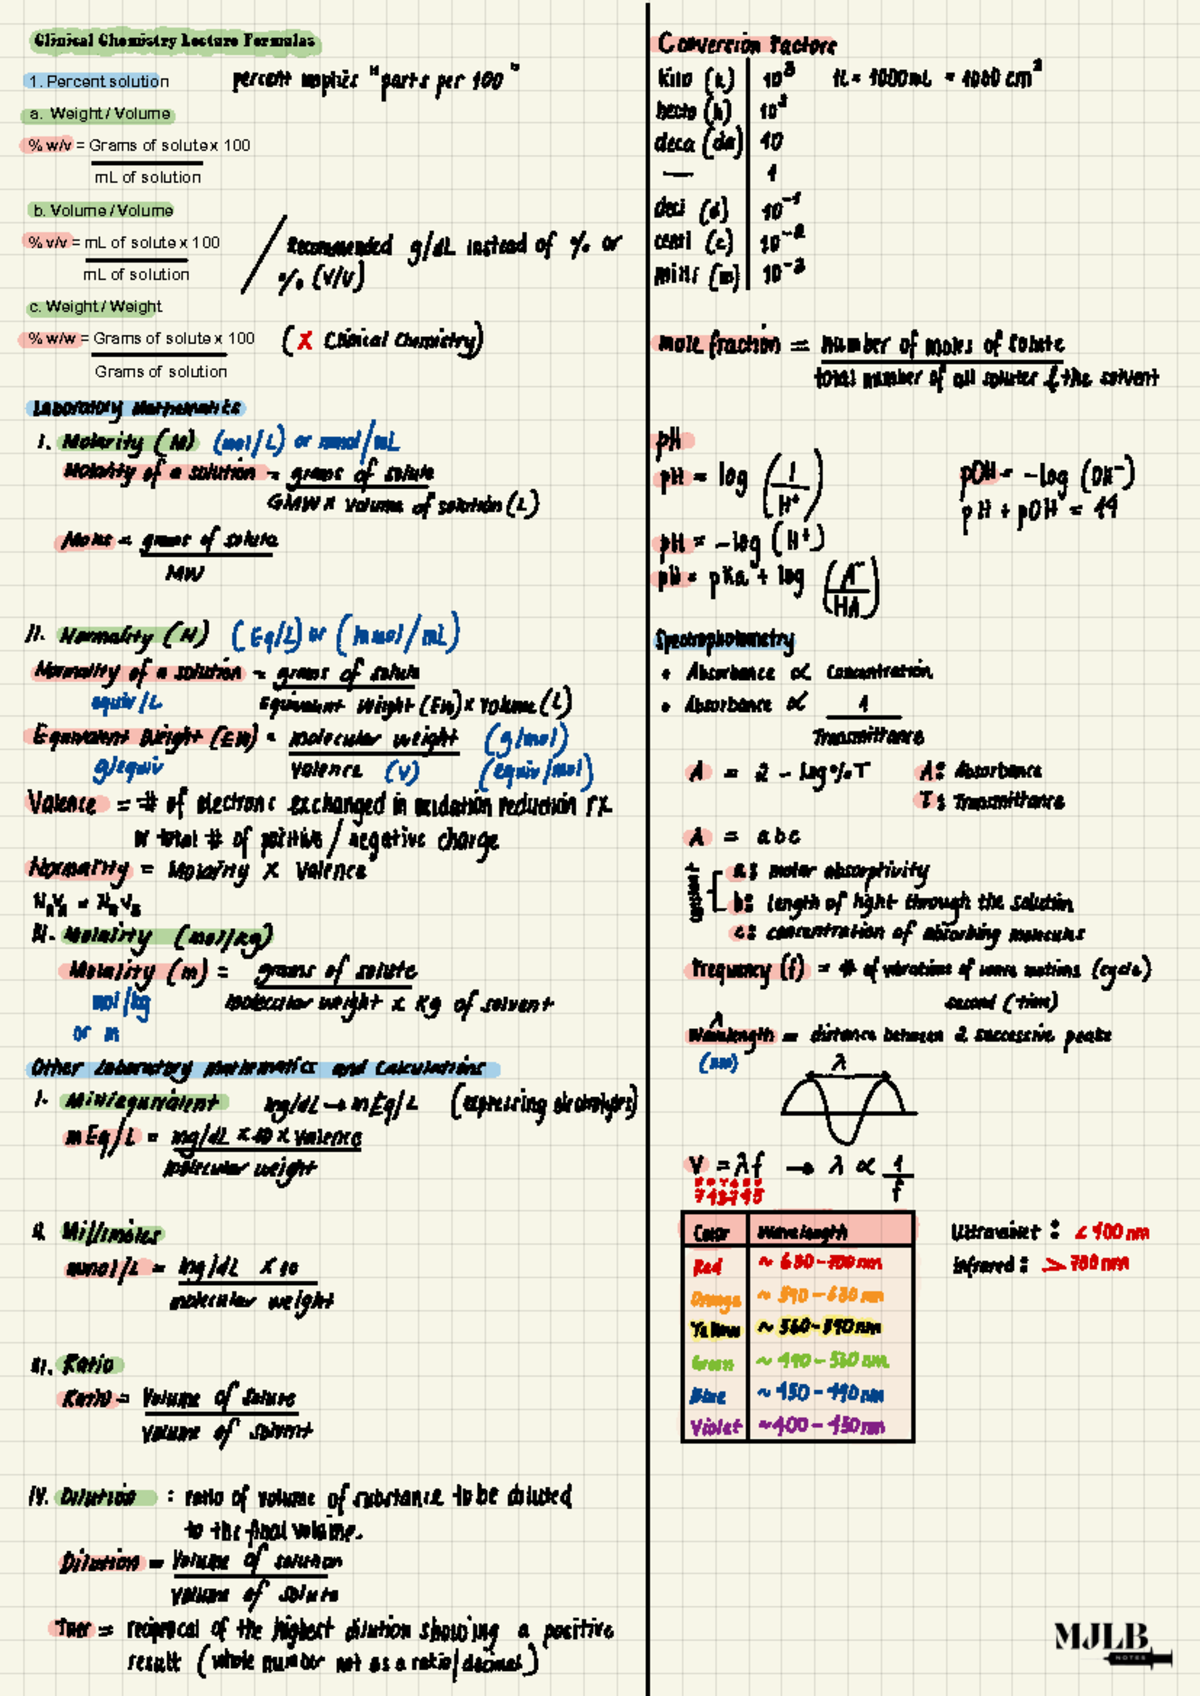 Clinical Chemistry Lecture Formulas
1. Percent solution percent implies "parts per 100"
a. Weight / Volume
% w/v = Grams of solute x 100
mL of solution
b. Volume / Volume
% v/v = mL of solute x 100
mL of solution
/ Recommended g/dL instead of % or
% (v/v)
c. Weight / Weight
% w/w = Grams of solute x 100 (X Clinical Chemistry)
Grams of solution
Laboratory Mathematics
I. Molarity (M) (mol/L) or mmol/mL
Molarity of a solution = grams of solute
GMW x volume of solution (L)
Moles = grams of solute
MW
II. Normality (N) (Eq/L) or (mmol/mL)
Normality of a solution = grams of solute
equiv/L Equivalent Weight (EW) x volume (L)
Equivalent Weight (EW) = molecular weight (g/mol)
g/equiv valence (v) (equiv/mol)
Valence = # of electrons exchanged in oxidation reduction rx.
or total # of positive / negative charge
Normality = Molarity x Valence
III. Molality (mol/kg)
Molality (m) = grams of solute
mol/kg molecular weight x kg of solvent
or m
Other Laboratory Mathematics and Calculations
I. Milliequivalent mg/dL → mEq/L (expressing electrolytes)
mEq/L = mg/dL x 10 x valence
molecular weight
II. Millimoles
mmol/L = mg/dL x 10
molecular weight
III. Ratio
Ratio = Volume of solute
volume of solvent
IV. Dilution : ratio of volume of substance to be diluted
to the final volume.
Dilution = Volume of solution
volume of solute
Titer = reciprocal of the highest dilution showing a positive
result (whole number not as a ratio/decimal)
Conversion Factors
kilo (k) 10³ 1L = 1000mL = 1000 cm³
hecto (h) 10²
deca (da) 10
— 1
deci (d) 10⁻¹
centi (c) 10⁻²
milli (m) 10⁻³
mole fraction = number of moles of solute
total number of all solutes & the solvent
pH
pH = log (1/H⁺) pOH = -log (OH⁻)
pH + pOH = 14
pH = -log (H⁺)
pH = pKa + log (A⁻/HA)
Spectrophotometry
• Absorbance ∝ Concentration
• Absorbance ∝ 1
Transmittance
A = 2 - log%T A: Absorbance
T: Transmittance
A = abc
constant
a: molar absorptivity
b: length of light through the solution
c: concentration of absorbing molecules
Frequency (f) = # of vibrations of wave motions (cycle)
second (time)
λ
Wavelength = distance between 2 successive peaks
(nm)
λ
V = λf → λ ∝ 1
f
Color Wavelength
Red ~ 630-700 nm
Orange ~ 590-630 nm
Yellow ~ 560-590 nm
Green ~ 490-560 nm
Blue ~ 450-490 nm
Violet ~400-450 nm
Ultraviolet : < 400 nm
Infrared : > 700 nm
MJLB
NOTES